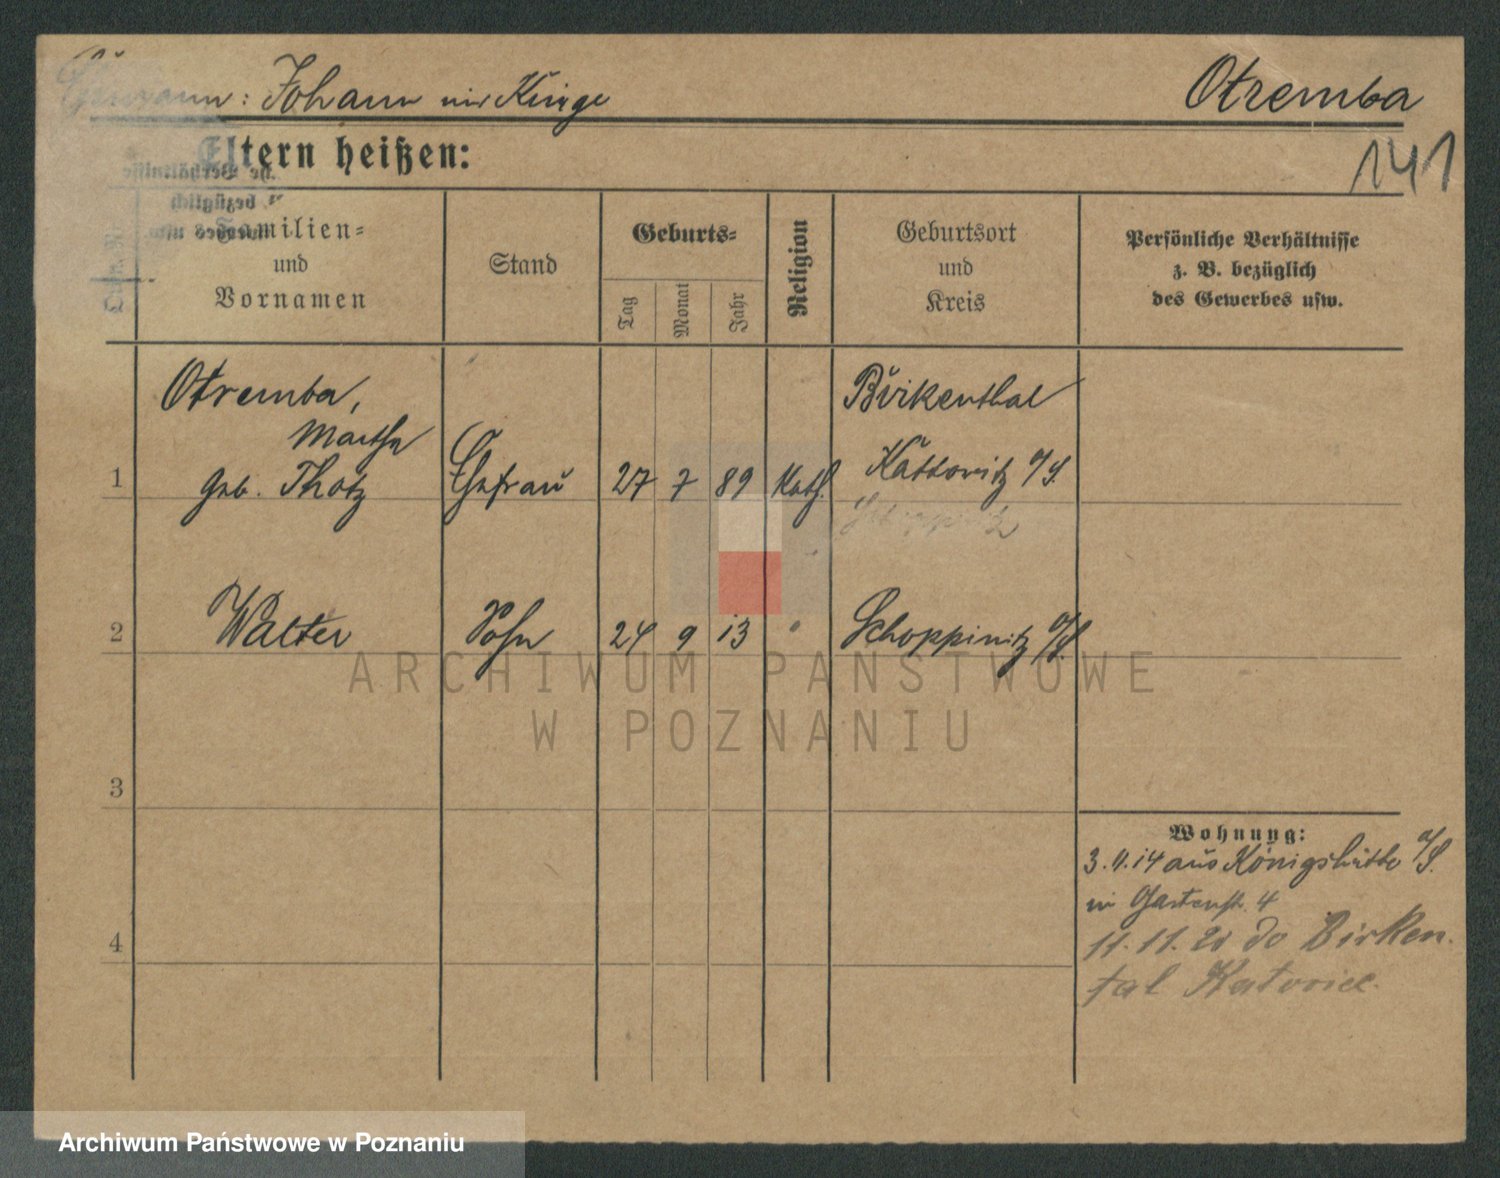 Ehemann: Johann im Kriege
Otremba
Eltern heißen:
141
Familien=
und
Vornamen
Stand
Geburts=
Tag
Monat
Jahr
Religion
Geburtsort
und
Kreis
Persönliche Verhältnisse
z. B. bezüglich
des Gewerbes usw.
Otremba,
Martha
geb. Thotz
1
Ehefrau
27
7
89
Kath.
Birkenthal
Kattowitz O/S.
Schoppinitz
2
Walter
Sohn
24
9
13
"
Schoppinitz O/S.
ARCHIWUM PAŃSTWOWE
W POZNANIU
3
4
Wohnung:
3.9.14 aus Königshütte O/S.
in Gartenstr. 4
11.11.21 do Birken-
tal Katowice.
Archiwum Państwowe w Poznaniu